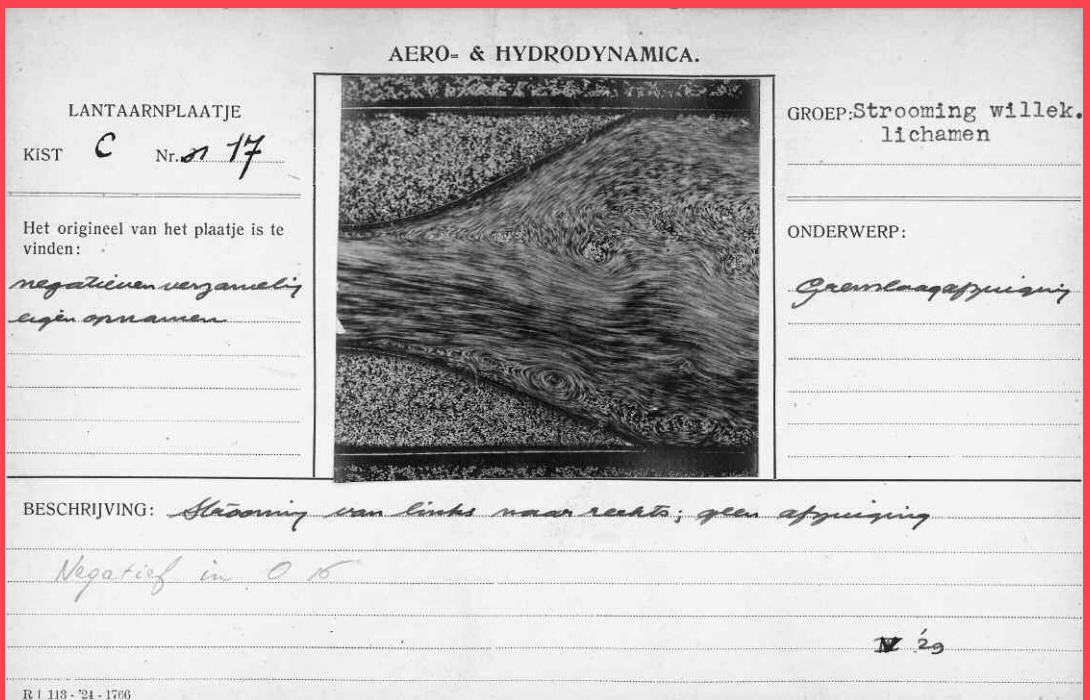 AERO= & HYDRODYNAMICA.
LANTAARNPLAATJE
KIST C Nr. 17
Het origineel van het plaatje is te
vinden:
negatieven verzameling
eigen opnamen
GROEP: Strooming willek.
lichamen
ONDERWERP:
Grenslaagafzuiging
BESCHRIJVING: Strooming van links naar rechts; geen afzuiging
Negatief in O 16
'29
R I 113 - '24 - 1766